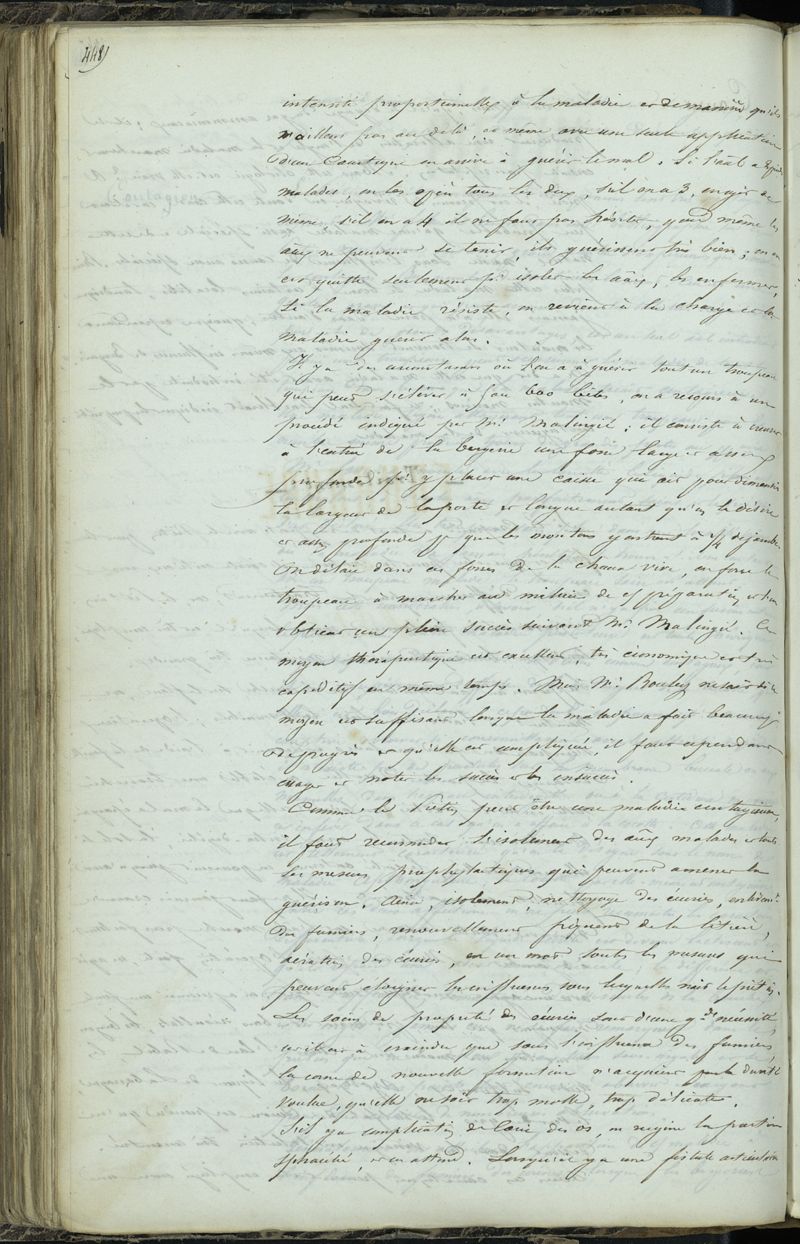 448)
intensité proportionnelle à la maladie et demandent qu'ils
n'aillent pas au delà, et même avec une seule application
d'un caustique on arrive à guérir le mal. Si l'aal a 2 pieds
malades, on les opère tous les deux, s'il en a 3, on agit de
même, s'il en a 4 il ne faut pas hésiter, quand même les
aãux ne peuvent se tenir, ils guérissent très bien ; on en
est quitte seulement pr isoler les aãux, les enfermer,
Si la maladie résiste, on revient à la charge et la
maladie guérit alors.
Il y a des circonstances où l'on a à guérir tout un troupeau
qui peut s'élever à 5 ou 600 bêtes, on a recours à un
procédé indiqué par Mr Malingié ; il consiste à creuser
à l'entrée de la bergerie une fosse large et assez
profonde pr y placer une caisse qui ait pour dimension
la largeur de la porte et longue autant qu'on le désire
et assez profonde pr que les moutons y entrent à 1/4 de jambe.
On délaie dans ces fosses de la chaux vive, on force le
troupeau à marcher au milieu de cette préparation, et l'on
obtient un plein succès suivant Mr Malingié. Ce
moyen thérapeutique est excellent, très économique et très
expéditif en même temps. Mais Mr Bouley ne sait si ce
moyen est suffisant lorsque la maladie a fait beaucoup
de progrès et qu'elle est compliquée, il faut cependant
essayer et noter les succès et les insuccès.
Comme le Piétin peut être une maladie contagieuse,
il faut recommander l'isolement des aãux malades et toutes
les mesures prophylactiques qui peuvent amener la
guérison. Ainsi, isolement, nettoyage des écuries, enlèvemt
des fumiers, renouvellement fréquent de la litière,
aération des écuries, en un mot toutes les mesures qui
peuvent éloigner les influences sous lesquelles naît le piétin.
Les soins de propreté des écuries sont d'une gde nécessité,
et il est à craindre que sous l'influence des fumiers,
la corne de nouvelle formation n'acquière pas la dureté
voulue, qu'elle ne soit trop molle, trop délicate.
S'il y a complication de Carie des os, on rugine la partie
sphacélée, et on attend. Lorsqu'il y a une fistule articulaire